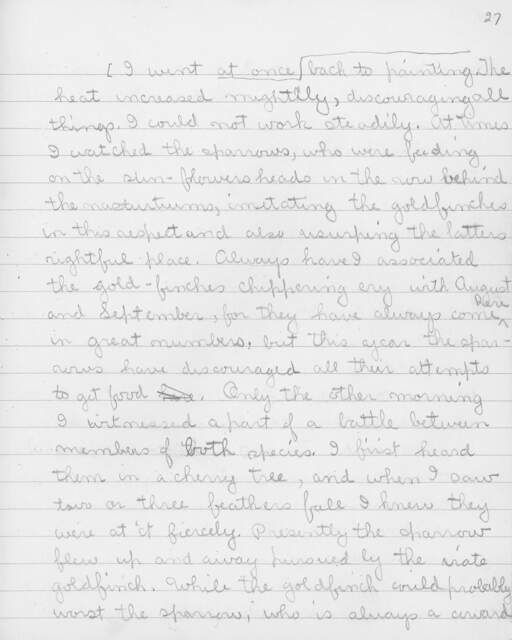 27
[I went at once back to painting. The
heat increased mightily, discouraging all
things. I could not work steadily. At times
I watched the sparrows, who were feeding
on the sun-flowers heads in the row behind
the nasturtiums, imitating the goldfinches
in this respect and also usurping the latters
rightful place. Always have I associated
the gold-finches chippering cry with August
and September, for they have always come here
in great numbers, but this year the spar-
rows have discouraged all their attempts
to get food. Only the other morning
I witnessed a part of a battle between
members of both species. I first heard
them in a cherry tree, and when I saw
two or three feathers fall I knew they
were at it fiercely. Presently the sparrow
flew up and away pursued by the irate
goldfinch. While the goldfinch could probably
worst the sparrow, who is always a coward